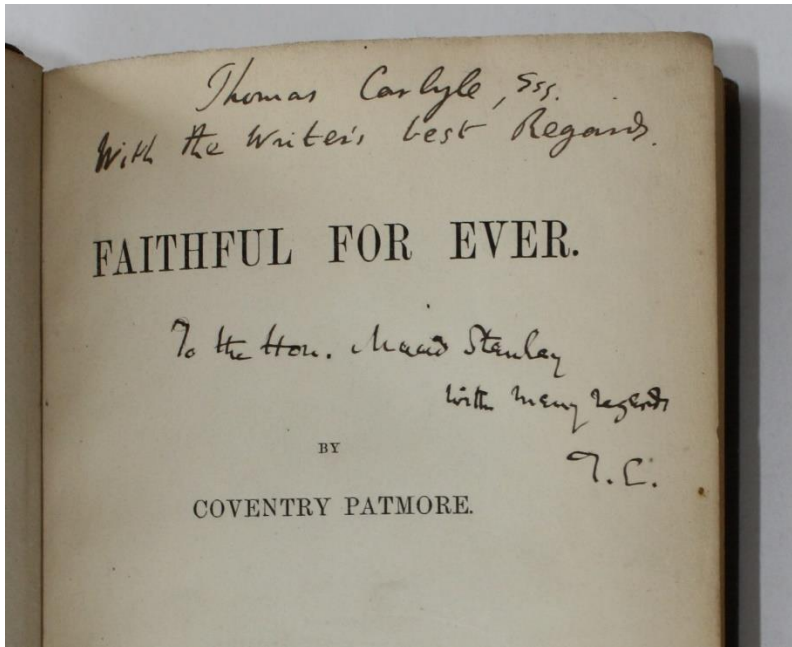 Thomas Carlyle, Esq.
With the Writer's best Regards.
FAITHFUL FOR EVER.
To the Hon. Maud Stanley
with many regards
T. C.
BY
COVENTRY PATMORE.